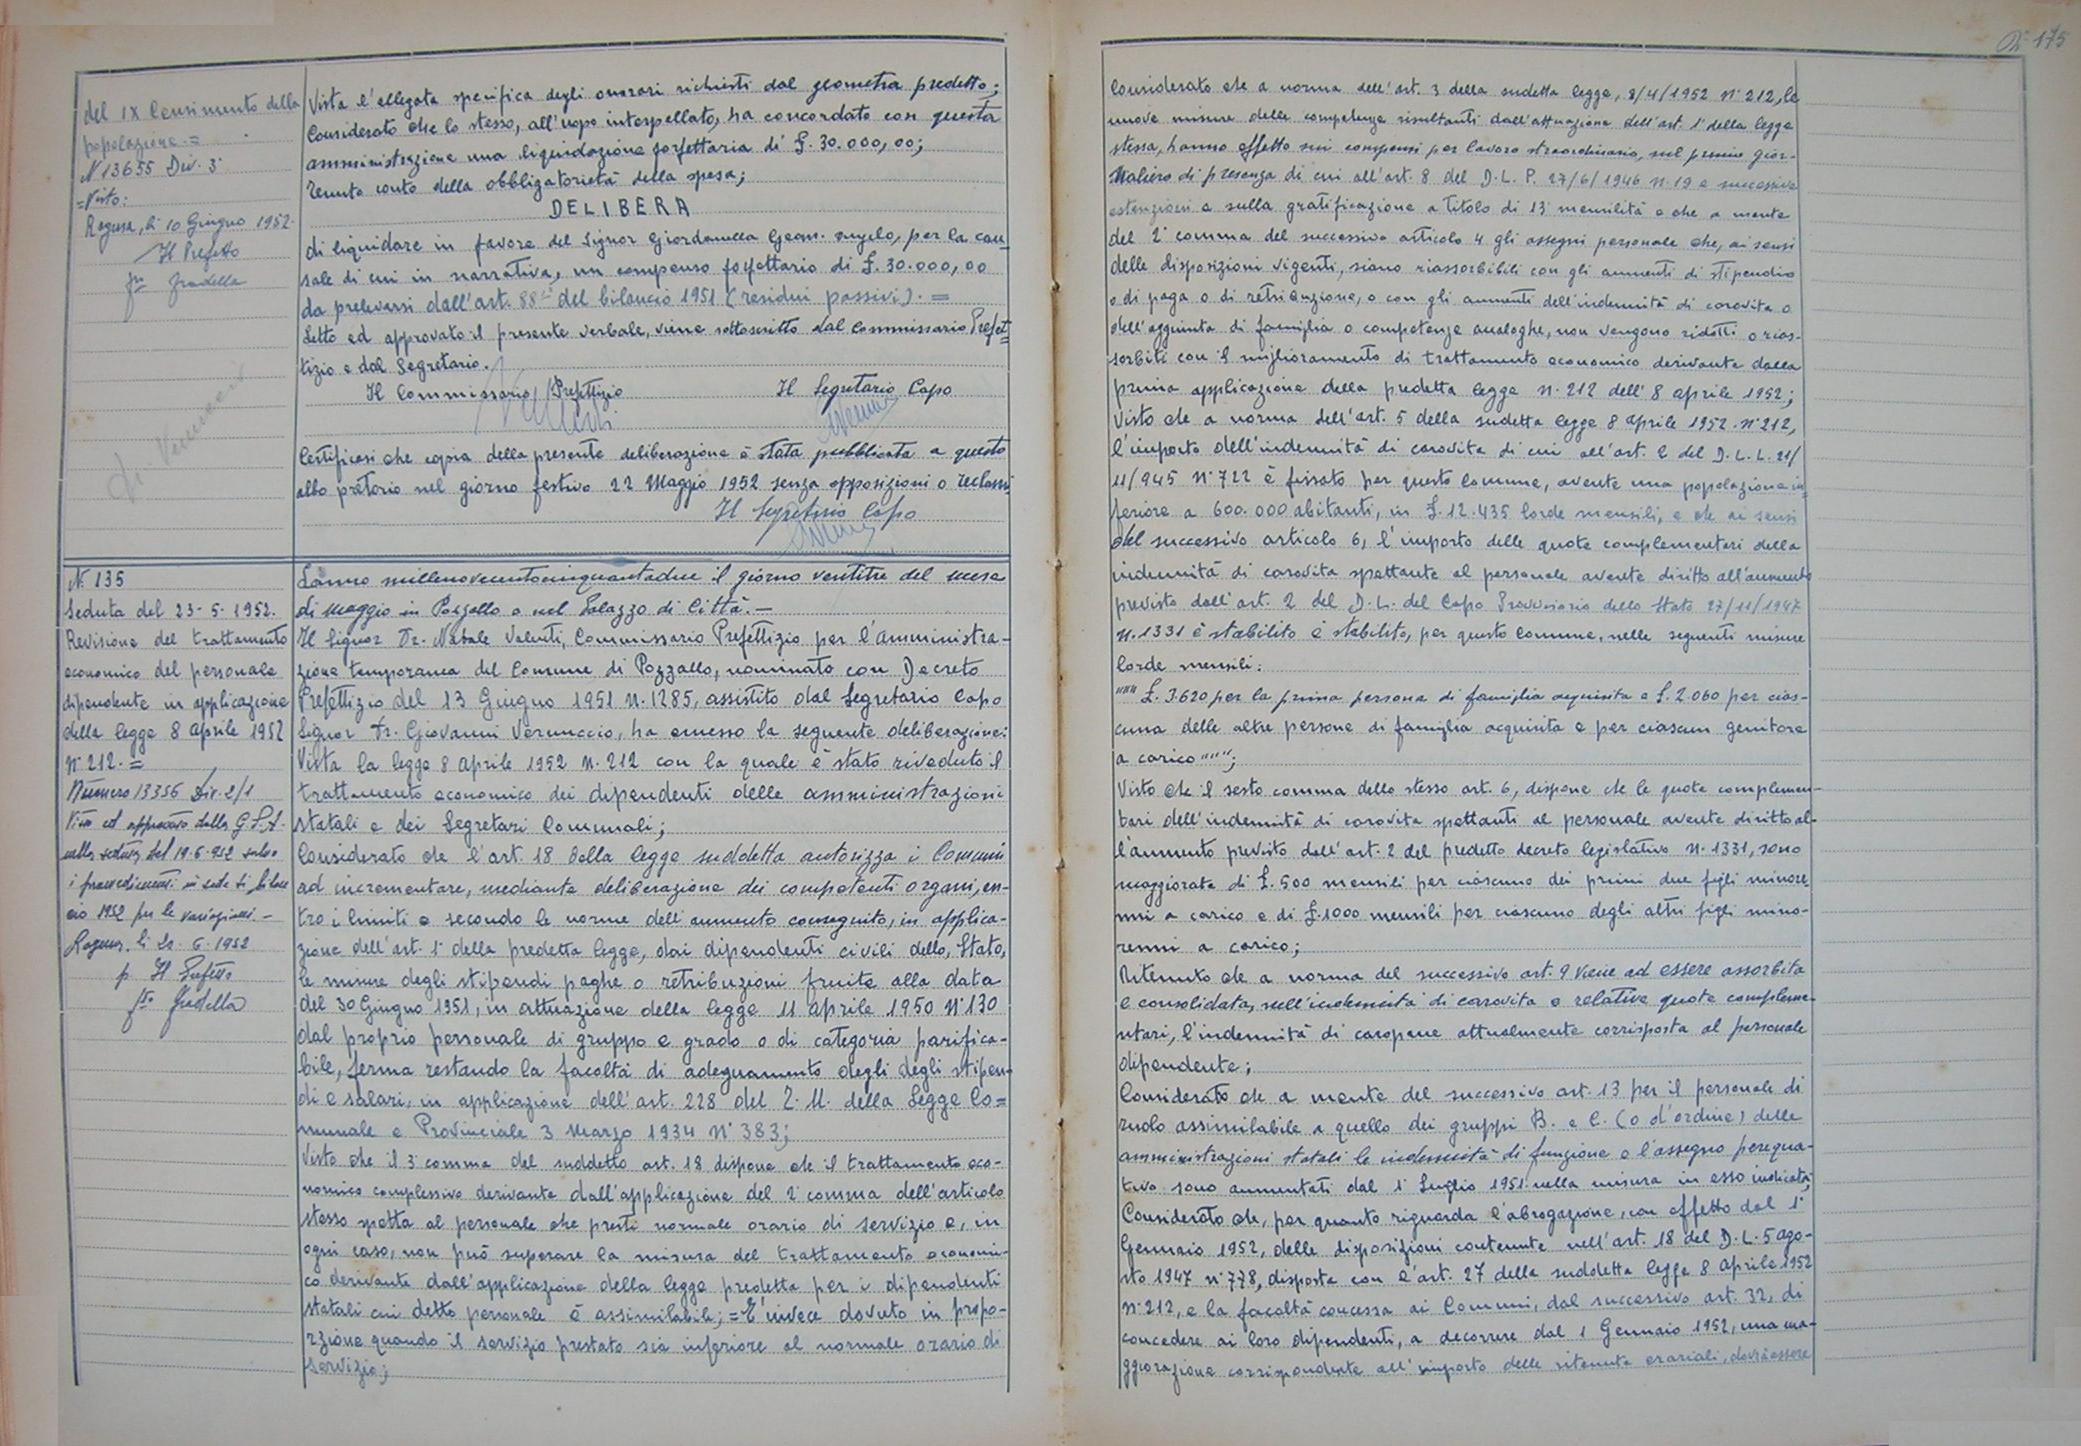 175
del IX Censimento della
popolazione.=
N 13655 Div. 3ª
=Visto:
Ragusa, lì 10 Giugno 1952.
Il Prefetto
Vista l'allegata specifica degli onorari richiesti dal geometra predetto;
Considerato che lo stesso, all'uopo interpellato, ha concordato con questa
amministrazione una liquidazione forfettaria di £. 30.000,00;
Tenuto conto della obbligatorietà della spesa;
DELIBERA
di liquidare in favore del Signor Giordanella Geom. Angelo, per la cau=
sale di cui in narrativa, un compenso forfettario di £. 30.000,00
da prelevarsi dall'art. 88 del bilancio 1951 (residui passivi). =
Letto ed approvato il presente verbale, viene sottoscritto dal Commissario Prefet=
tizio e dal Segretario.
Il Commissario Prefettizio Il Segretario Capo
Certificasi che copia della presente deliberazione è stata pubblicata a questo
albo pretorio nel giorno festivo 22 Maggio 1952 senza opposizioni o reclami
Il Segretario Capo
N. 135
Seduta del 23-5-1952.
Revisione del trattamento
economico del personale
dipendente in applicazione
della legge 8 Aprile 1952
N° 212.=
Numero 13356 Div. 2/1
Visto ed approvato dalla G.P.A.
nella seduta del 19-6-952 salvo
i provvedimenti in sede di bilan
cio 1952 per le variazioni.-
Ragusa, lì 6-1952
p. Il Prefetto
L'anno millenovecentocinquantadue il giorno ventitre del mese
di Maggio in Pozzallo e nel Palazzo di Città.-
Il Signor Dr. Natale Valenti, Commissario Prefettizio per l'amministra-
zione temporanea del Comune di Pozzallo, nominato con Decreto
Prefettizio del 13 Giugno 1951 N. 1285, assistito dal Segretario Capo
Signor Dr. Giovanni Vernuccio, ha emesso la seguente deliberazione:
Vista la legge 8 Aprile 1952 N. 212 con la quale è stato riveduto il
trattamento economico dei dipendenti delle amministrazioni
statali e dei Segretari Comunali;
Considerato che l'art. 18 della legge suddetta autorizza i Comuni
ad incrementare, mediante deliberazione dei competenti organi, en-
tro i limiti e secondo le norme dell'aumento conseguito, in applica-
zione dell'art. 1° della predetta legge, dai dipendenti civili dello, Stato,
le misure degli stipendi paghe o retribuzioni fruite alla data
del 30 Giugno 1951, in attuazione della legge 11 Aprile 1950 N° 130
dal proprio personale di gruppo e grado o di categoria parifica-
bile, ferma restando la facoltà di adeguamento degli degli stipen
di e salari, in applicazione dell'art. 228 del T. U. della Legge Co=
munale e Provinciale 3 Marzo 1934 N° 383;
Visto che il 3° comma del suddetto art. 18 dispone che il trattamento eco-
nomico complessivo derivante dall'applicazione del 2° comma dell'articolo
stesso spetta al personale che presti normale orario di servizio e, in
ogni caso, non può superare la misura del trattamento economi-
co derivante dall'applicazione della legge predetta per i dipendenti
statali cui detto personale è assimilabile; =E' invece dovuto in propo-
rzione quando il servizio prestato sia inferiore al normale orario di
servizio;
Considerato che a norma dell'art. 3 della sudetta legge, 8/4/1952 N° 212, le
nuove misure delle competenze risultanti dall'attuazione dell'art. 1° della legge
stessa, hanno effetto sui compensi per lavoro straordinario, sul premio gior-
naliero di presenza di cui all'art. 8 del D.L.P. 27/6/1946 N. 19 e successive
estenzioni e sulla gratificazione a titolo di 13ª mensilità e che a mente
del 2° comma del successivo articolo 4 gli assegni personale che, ai sensi
delle disposizioni vigenti, siano riassorbibili con gli aumenti di stipendio
o di paga o di retribuzione, o con gli aumenti dell'indennità di carovita o
dell'aggiunta di famiglia o competenze analoghe, non vengono ridotti o rias-
sorbiti con il miglioramento di trattamento economico derivante dalla
prima applicazione della predetta legge N. 212 dell'8 Aprile 1952;
Visto che a norma dell'art. 5 della sudetta legge 8 Aprile 1952 N° 212,
l'importo dell'indennità di carovita di cui all'art. 2 del D.L.L. 21/
11/945 N° 722 è fissato per questo Comune, avente una popolazione in=
feriore a 600.000 abitanti, in £. 12.435 lorde mensili, e che ai sensi
del successivo articolo 6, l'importo delle quote complementari della
indennità di carovita spettante al personale avente diritto all'aumento
previsto dall'art. 2 del D.L. del Capo Provvisorio dello Stato 27/11/1947
N. 1331 è stabilito è stabilito, per questo Comune, nelle seguenti misure
lorde mensili:
""" £. 3620 per la prima persona di famiglia acquisita e £. 2.060 per cias-
cuna delle altre persone di famiglia acquisita e per ciascun genitore
a carico""";
Visto che il sesto comma dello stesso art. 6, dispone che le quote complemen-
tari dell'indennità di carovita spettanti al personale avente diritto al-
l'aumento previsto dall'art. 2 del predetto decreto legislativo N. 1331, sono
maggiorate di £. 500 mensili per ciascuno dei primi due figli minore
nni a carico e di £. 1000 mensili per ciascuno degli altri figli mino-
renni a carico;
Ritenuto che a norma del successivo art. 9 viene ad essere assorbita
e consolidata, nell'indennità di carovita e relative quote compleme-
ntari, l'indennità di caropane attualmente corrisposta al personale
dipendente;
Considerato che a mente del successivo art. 13 per il personale di
ruolo assimilabile a quello dei gruppi B. e C. (o d'ordine) delle
amministrazioni statali le indennità di funzione e l'assegno perequa-
tivo sono aumentati dal 1° Luglio 1951 nella misura in esso indicata;
Considerato che, per quanto riguarda l'abrogazione, con effetto dal 1°
Gennaio 1952, delle disposizioni contenute nell'art. 18 del D.L. 5 ago-
sto 1947 N° 778, disposta con l'art. 27 della suddetta legge 8 Aprile 1952
N° 212, e la facoltà concessa ai Comuni, dal successivo art. 32, di
concedere ai loro dipendenti, a decorrere dal 1 Gennaio 1952, una ma-
ggiorazione corrispondente all'importo delle ritenute erariali, dovrà essere